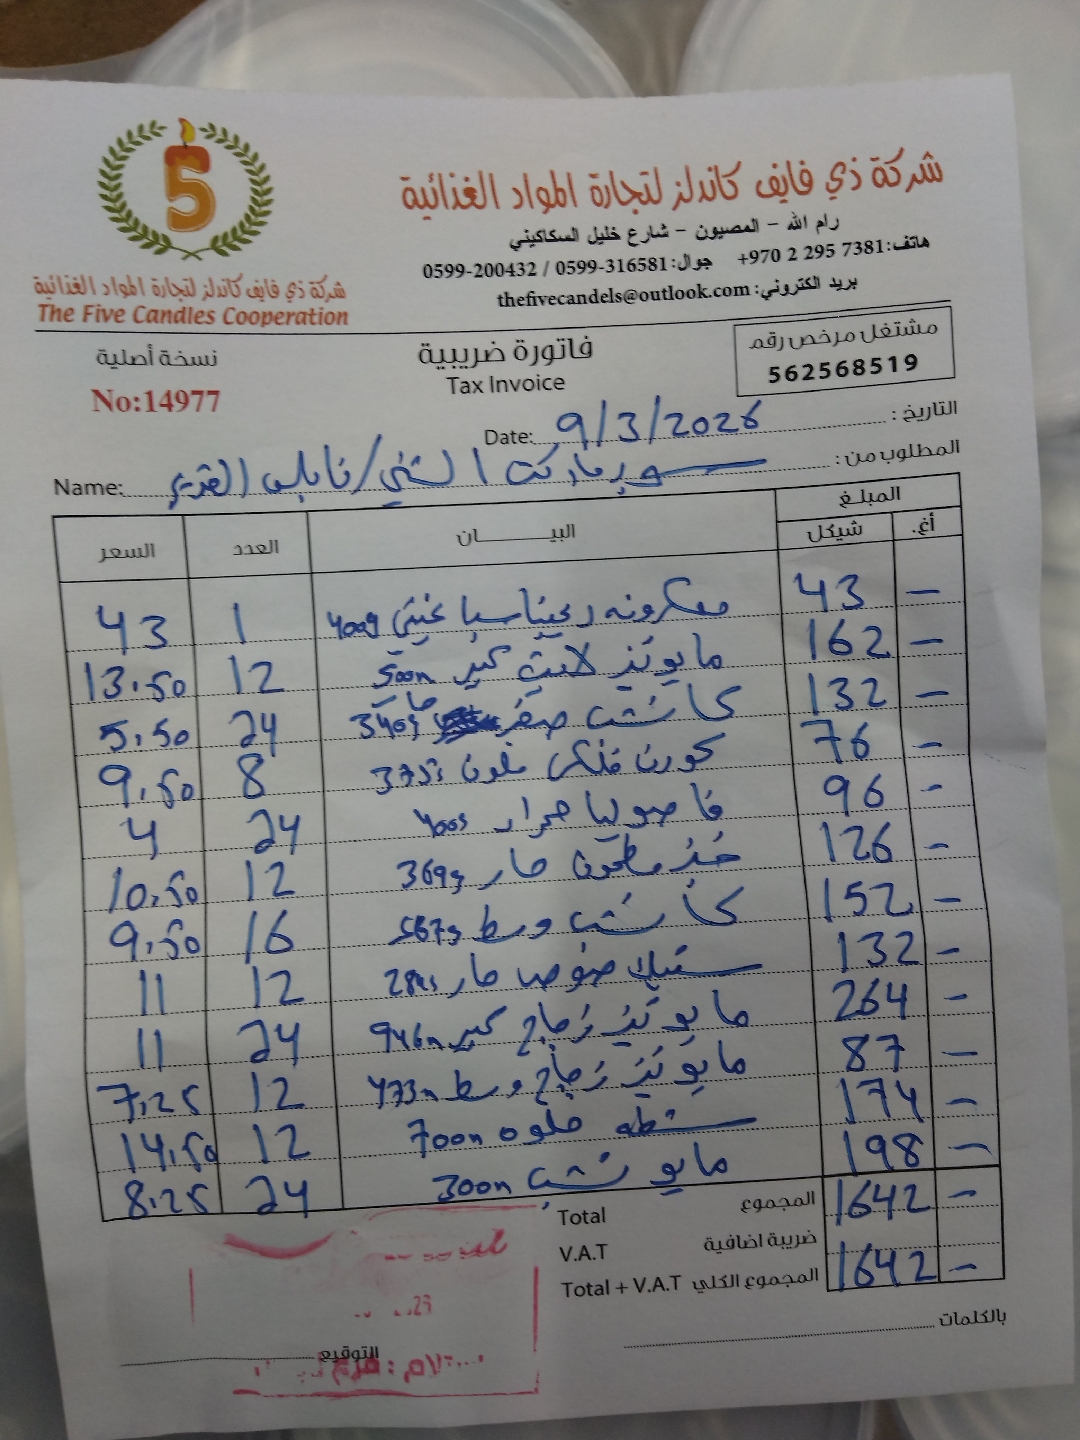 5
شركة ذي فايف كاندلز لتجارة المواد الغذائية
The Five Candles Cooperation
شركة ذي فايف كاندلز لتجارة المواد الغذائية
رام الله - المصيون - شارع خليل السكاكيني
هاتف: +970 2 295 7381 جوال: 0599-316581 / 0599-200432
بريد الكتروني: thefivecandels@outlook.com
نسخة أصلية
No:14977
فاتورة ضريبية
Tax Invoice
مشتغل مرخص رقم
562568519
التاريخ: 9/3/2026 Date:
المطلوب من: سوبرماركت الشني/نابلس Name:
السعر العدد البيـــــان المبلغ
شيكل أغ.
43 1 معكرونه 400g 43 -
13.50 12 مايونيز لايت كبير 500m 162 -
5.50 24 كاتشب صغير حار 340g 132 -
9.50 8 كورن فلكس ملون 375g 76 -
4 24 فاصوليا حمراء 400g 96 -
10.50 12 حار 369g 126 -
9.50 16 كاتشب وسط 567g 152 -
11 12 حار 132 -
11 24 مايونيز زجاج كبير 946m 264 -
7.25 12 مايونيز زجاج وسط 473m 87 -
14.50 12 شطه حلوه 700m 174 -
8.25 24 مايو تشب 300m 198 -
Total المجموع 1642 -
V.A.T ضريبة اضافية
Total + V.A.T المجموع الكلي 1642 -
بالكلمات
التوقيع